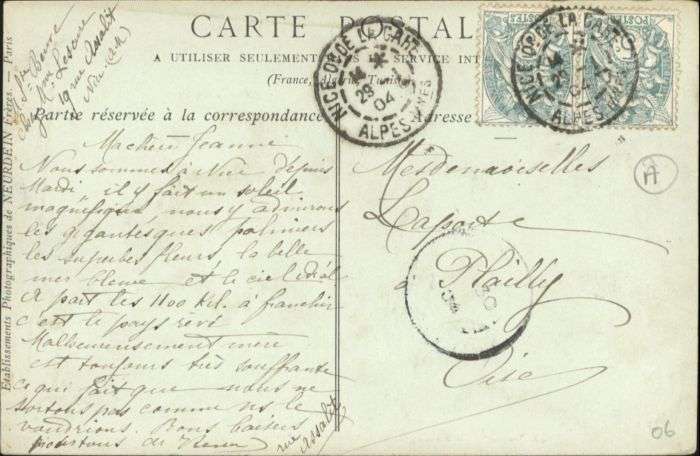 CARTE POSTALE
A UTILISER SEULEMENT DANS LE SERVICE INT
(France, Algérie, Tunisie
Partie réservée à la correspondance
Adresse
NICE Pce DE LA GARE
29
04
ALPES MMES
NICE Pce DE LA GARE
29
04
ALPES MMES
Établissements Photographiques de NEURDEIN Frères. — Paris
chez Mme Lescure
19 rue Assalit
Nice (A-M)
Ma chère Jeanne
Nous sommes à Nice depuis
Mardi il y fait un soleil
magnifique, nous y admirons
les gigantesques palmiers
les superbes fleurs, la belle
mer bleue et le ciel idéal
A part les 1100 kil. à franchir
c'est le pays rêvé
Malheureusement mère
est toujours très souffrante
ce qui fait que nous ne
sortons pas comme ns le
voudrions. Bons baisers
pour tous de
rue Assalit
Mesdemoiselles
Laporte
à Plailly
Oise
A
06